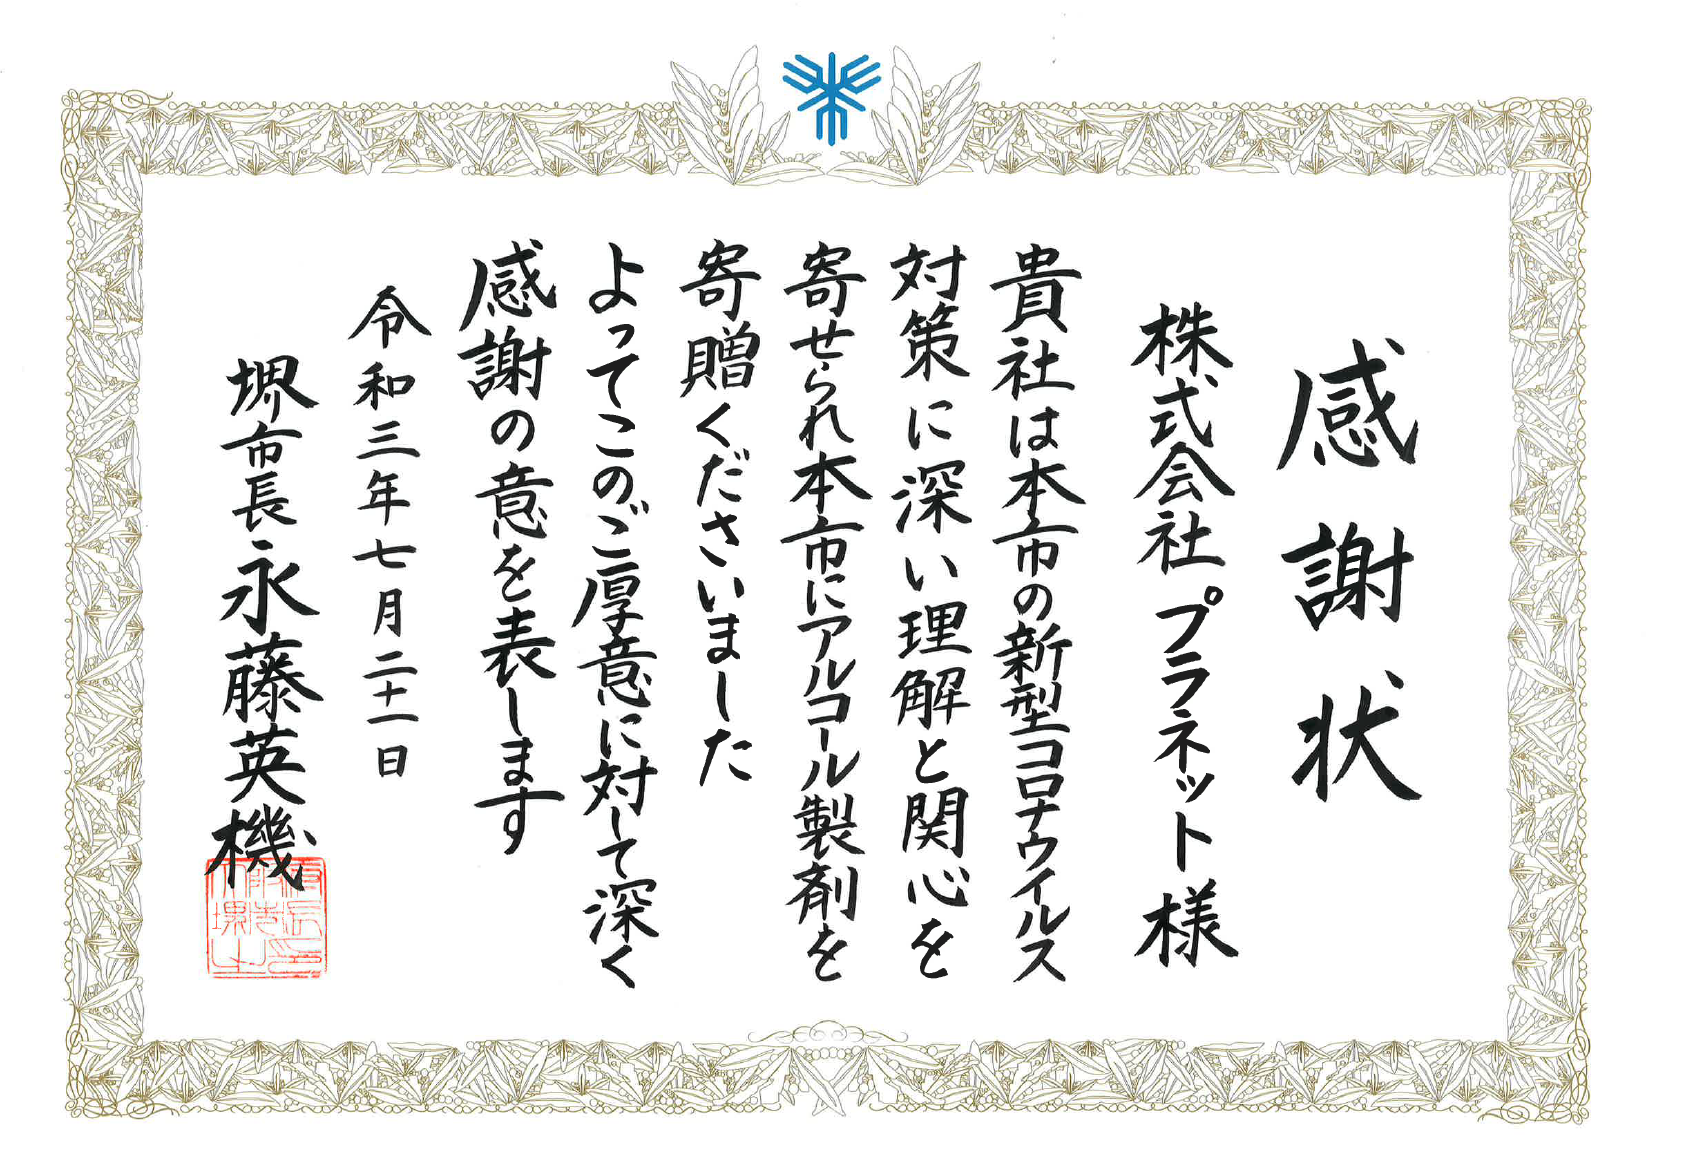 感謝状
株式会社プラネット様
貴社は本市の新型コロナウイルス
対策に深い理解と関心を
寄せられ本市にアルコール製剤を
寄贈くださいました
よってこのご厚意に対して深く
感謝の意を表します
令和三年七月二十一日
堺市長永藤英機